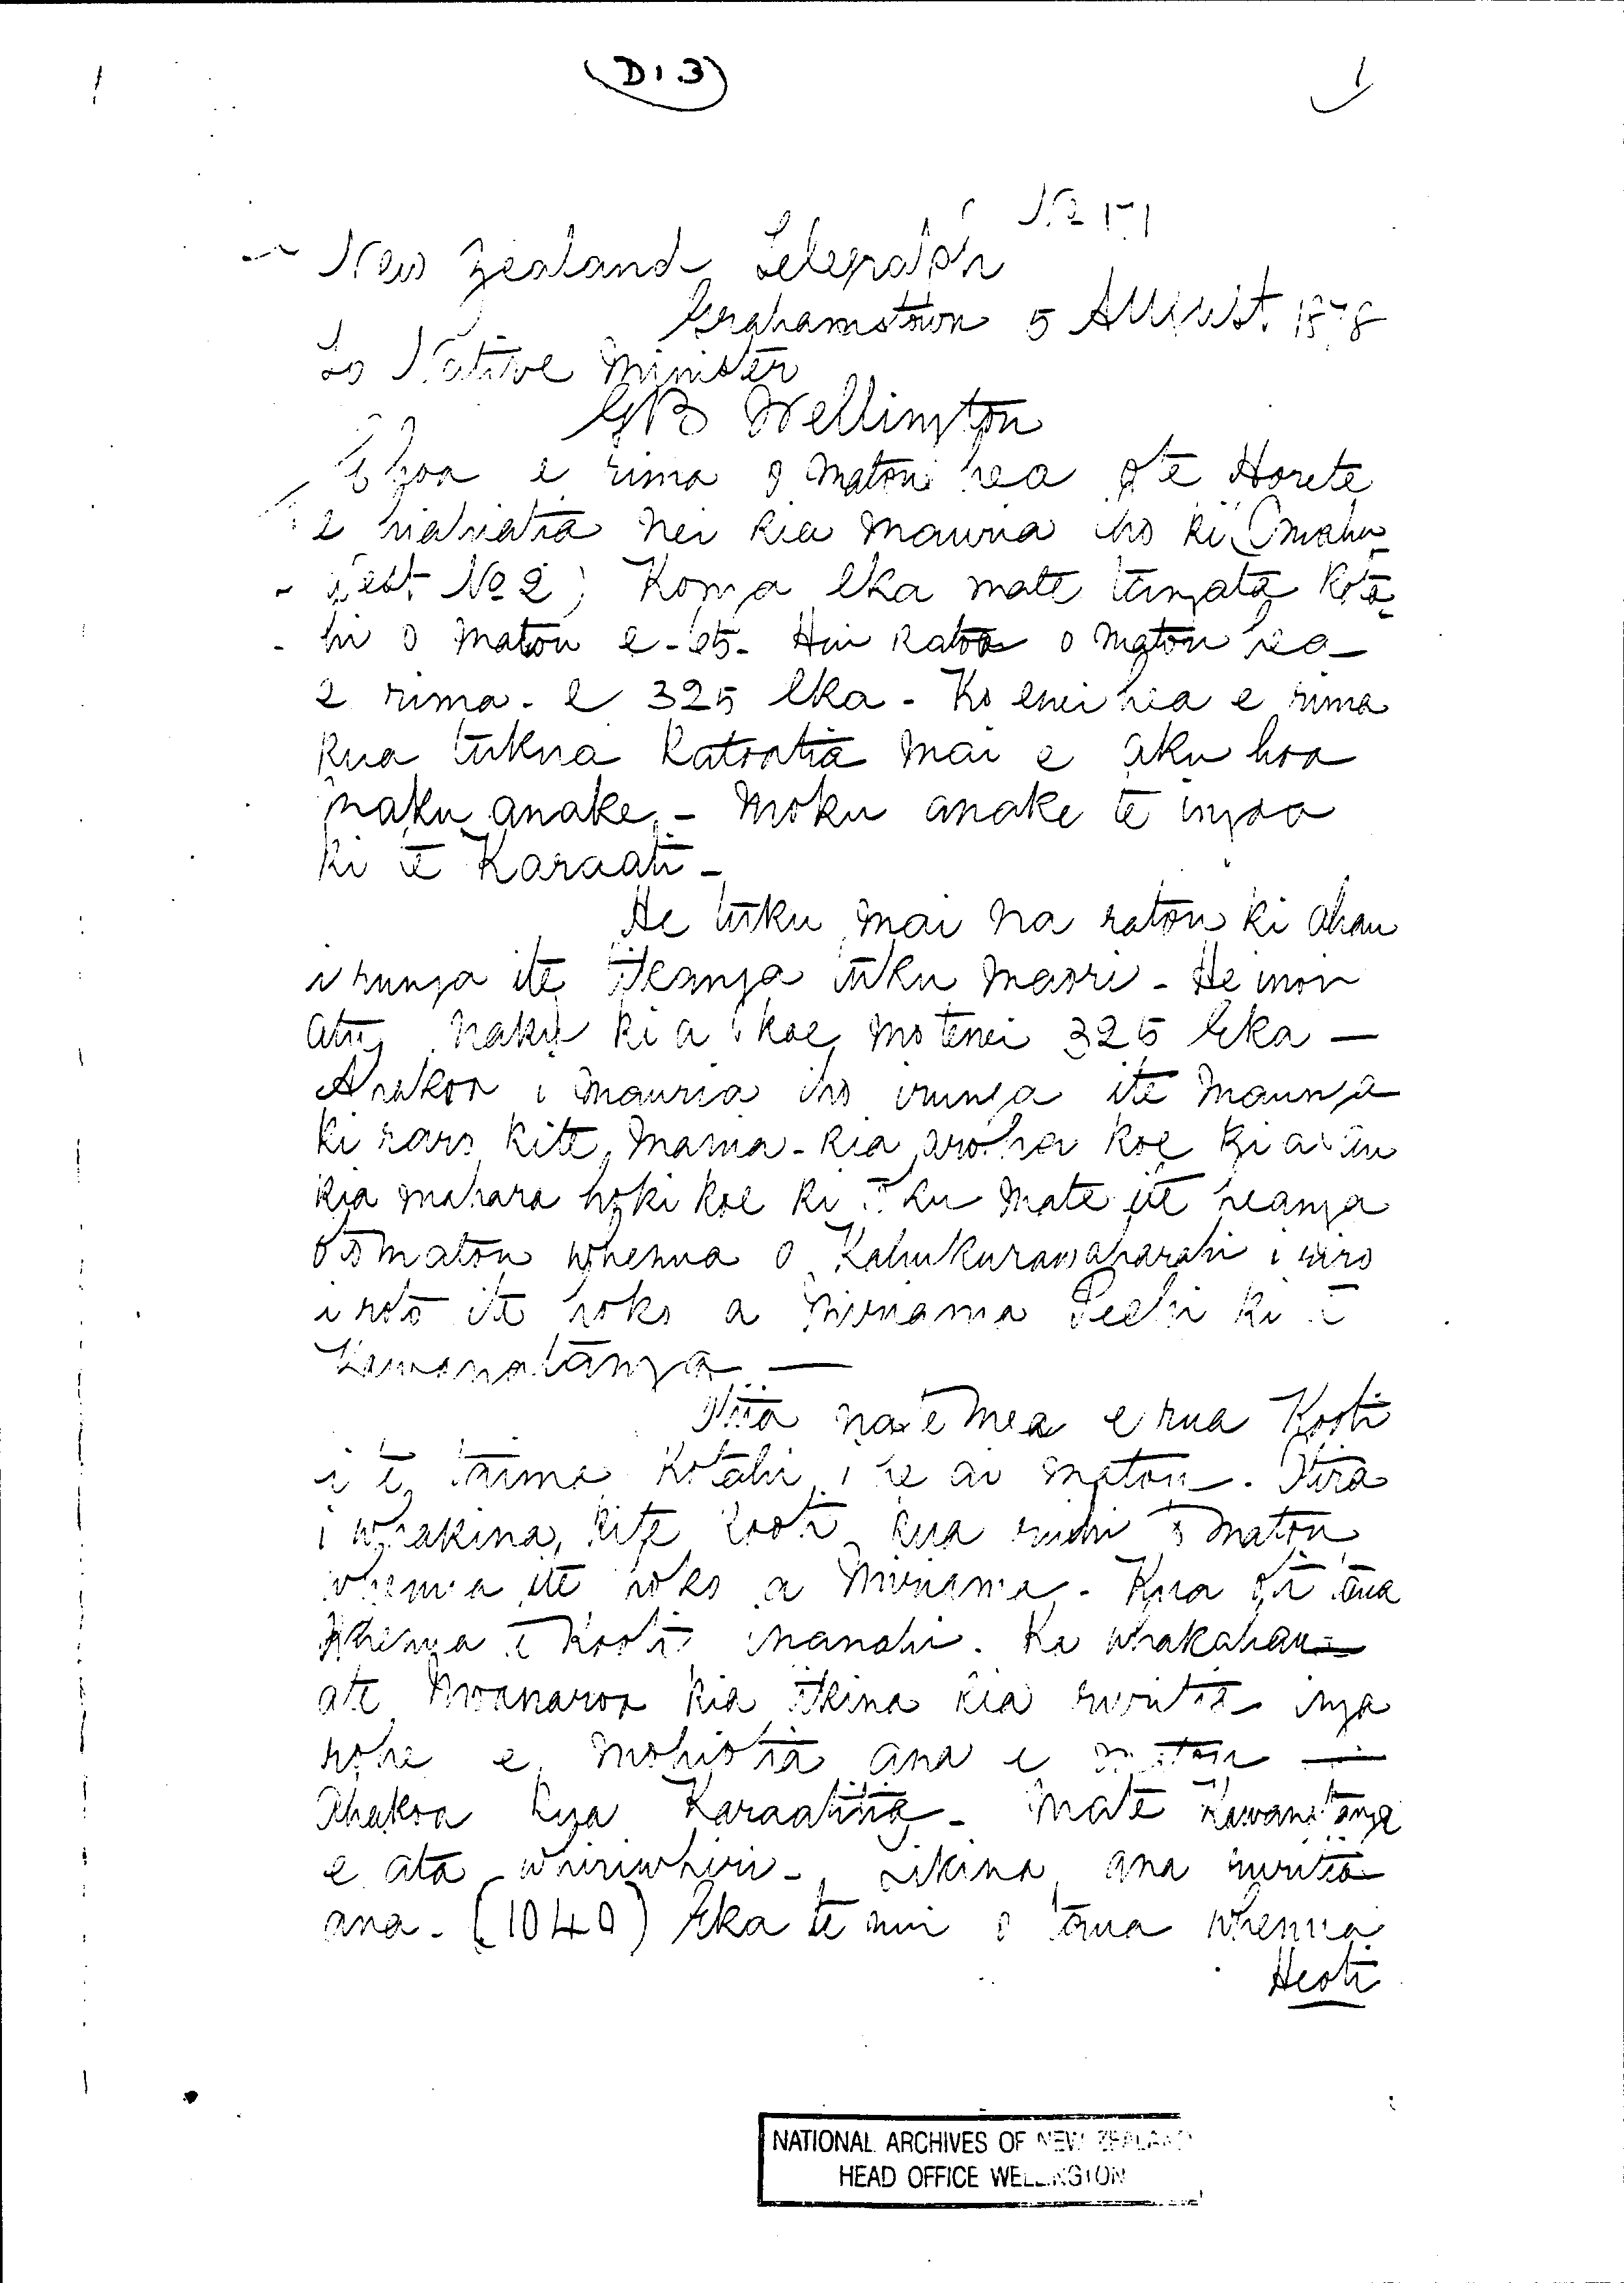 (D1.3)
New Zealand Telegraph
Grahamstown 5 August. 1878
To Native Minister
GB Wellington
E hoa e rima o matou hea o te Horete
e hiahiatia nei kia mauria iho ki Omahu
West No 2; Koma eka mate tangata Kota-
hi o matou e-65- Hui katoa o matou hea
e rima - e 325 eka - Ko enei hea e rima
kua tukua katoatia mai e aku hoa
naku anake - Moku anake te ingoa
ki te Karaati -
He tuku mai na ratou ki ahau
i runga ite tikanga tuku maori - He inoi
atu naku ki a koe mo tenei 325 Eka -
Ahakoa i mauria iho irunga ite Maunga
ki raro kite Mania - kia aroha koe ki a au
kia mahara hoki koe ki taku mate ite heanga
o to matou whenua o Kahukurawaharahi i riro
i roto ite hoko a Miriama Peehi ki te
Kawanatanga -
Ina na te mea e rua Kooti
i te taima Kotahi i he ai matou. Otira
i whakina kite kooti kua uru to matou
whenua ite hoko a Miriama - Kua oti taua
whenua te Kooti inanahi. Ka whakahau-
ate Moananui kia tikina kia ruritia inga
rohe e mohiotia ana e matou -
Ahakoa kua Karaatitia - Mate Kawanatanga
e ata whiriwhiri - Tikina ana ruritia
ana - (1040) Eka te nui o taua whenua
Heoti
NATIONAL ARCHIVES OF NEW ZEALAND
HEAD OFFICE WELLINGTON